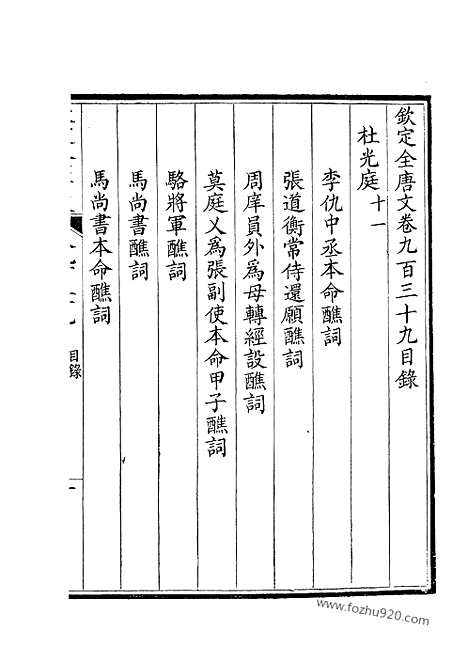 欽定全唐文卷九百三十九目錄
杜光庭十一
李仇中丞本命醮詞
張道衡常侍還願醮詞
周庠員外為母轉經設醮詞
莫庭乂為張副使本命甲子醮詞
駱將軍醮詞
馬尚書醮詞
馬尚書本命醮詞
目錄
一
www.fozhu920.com